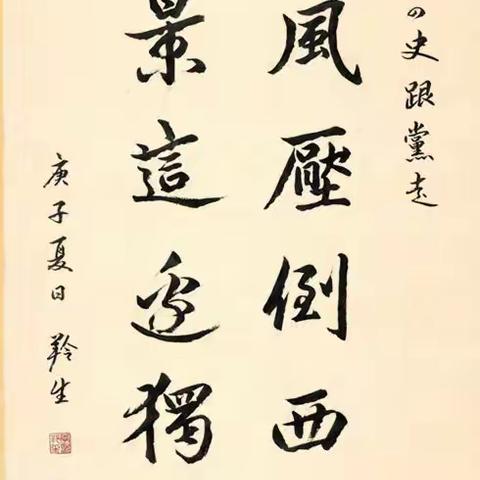 四史跟黨走
風壓倒西
景這邊獨
庚子夏日 羚生